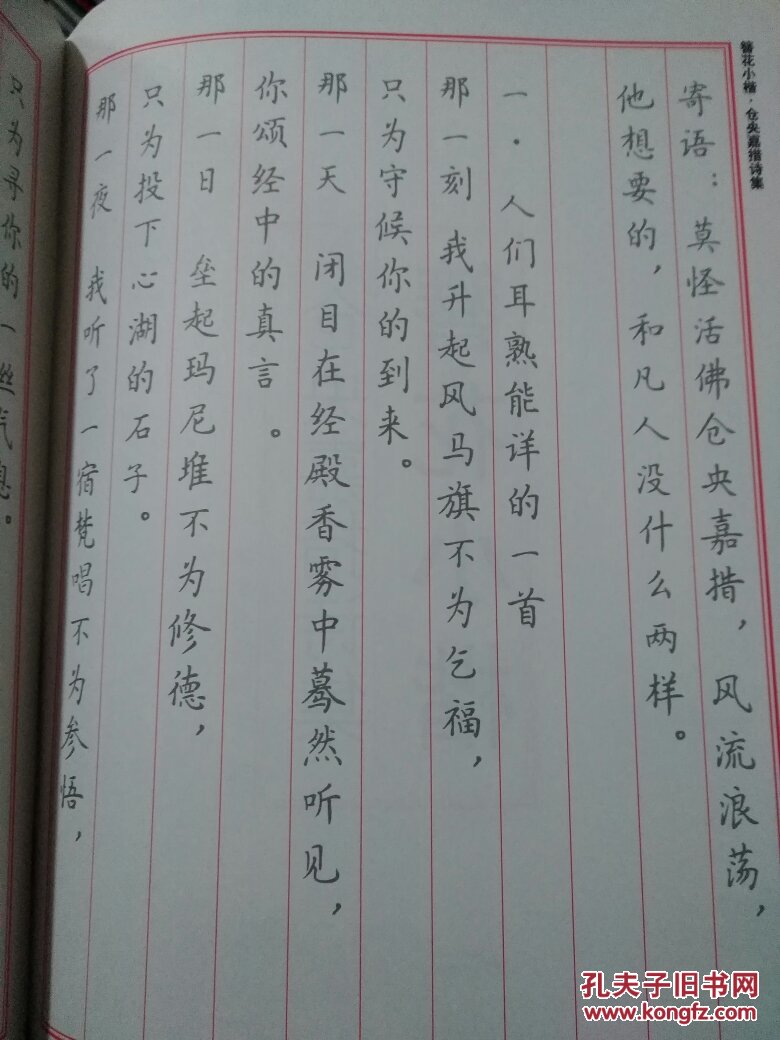 簪花小楷·仓央嘉措诗集
寄语：莫怪活佛仓央嘉措，风流浪荡，
他想要的，和凡人没什么两样。
一·人们耳熟能详的一首
那一刻 我升起风马旗不为乞福，
只为守候你的到来。
那一天 闭目在经殿香雾中蓦然听见，
你颂经中的真言。
那一日 垒起玛尼堆不为修德，
只为投下心湖的石子。
那一夜 我听了一宿梵唱不为参悟，
只为寻你的一丝气息。
孔夫子旧书网
www.kongfz.com